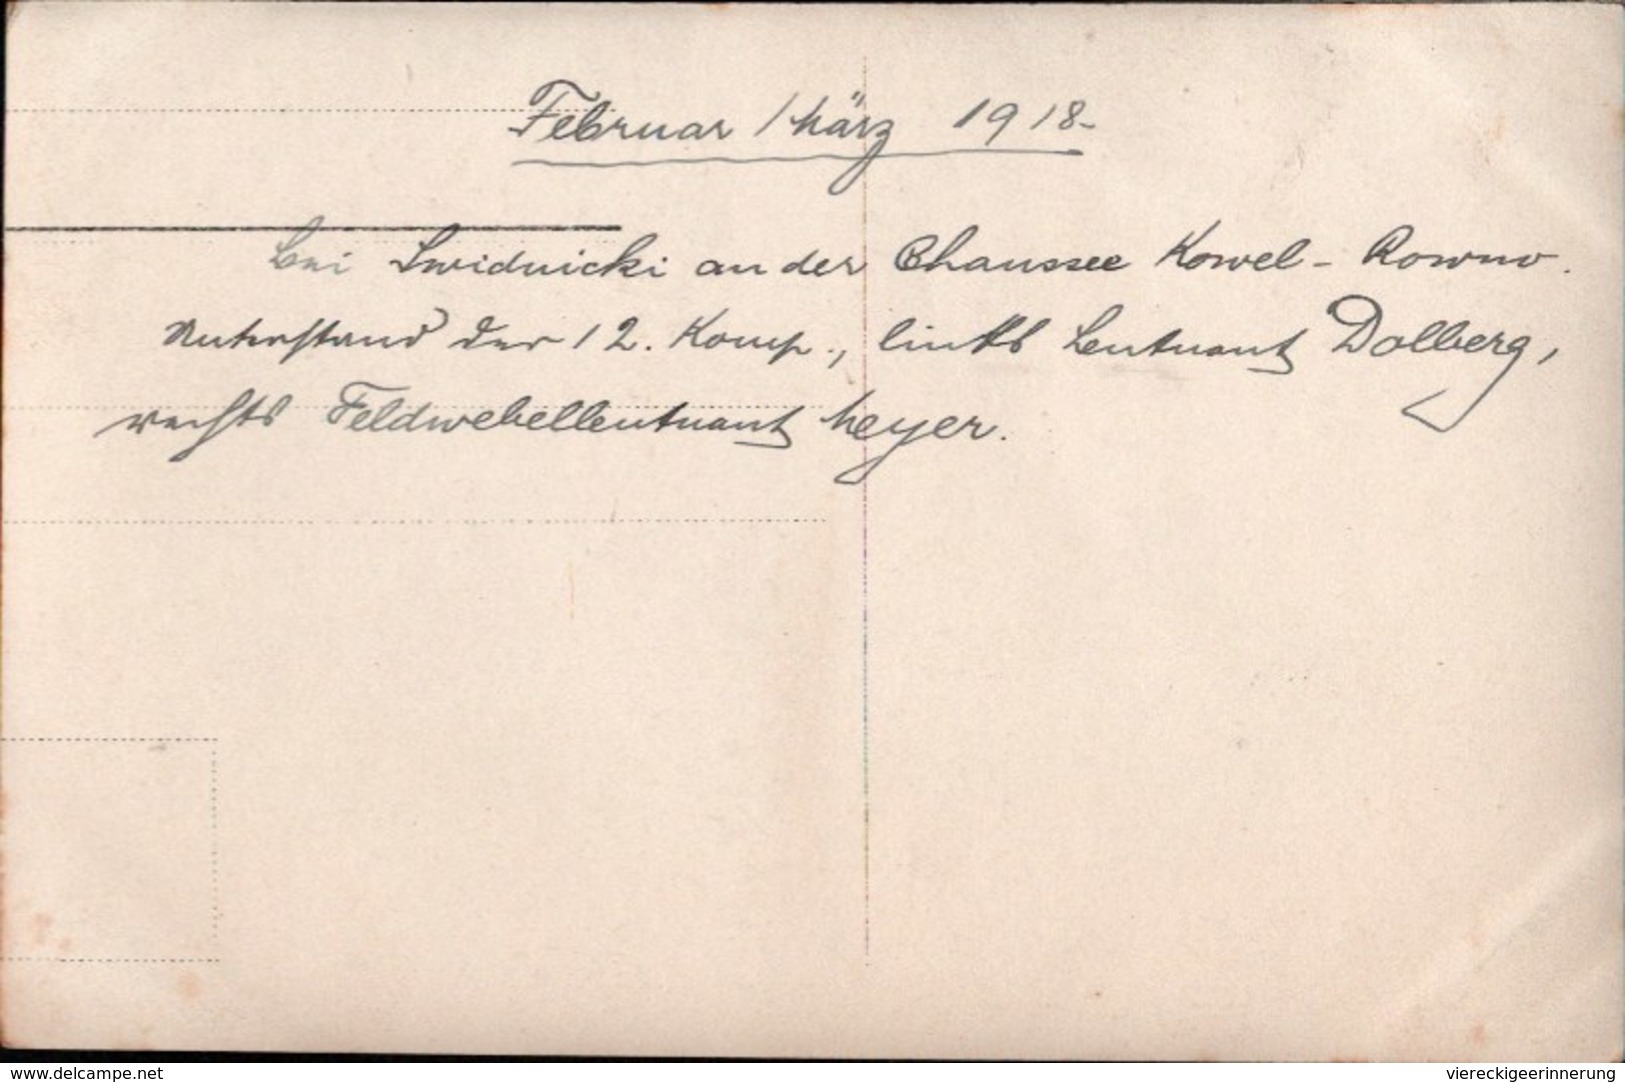 Februar / März 1918.
Bei Swidnicki an der Chaussee Kowel - Rowno.
Unterstand der 12. Komp., links Leutnant Dollberg,
rechts Feldwebelleutnant Meyer.
www.delcampe.net
viereckigeerinnerung